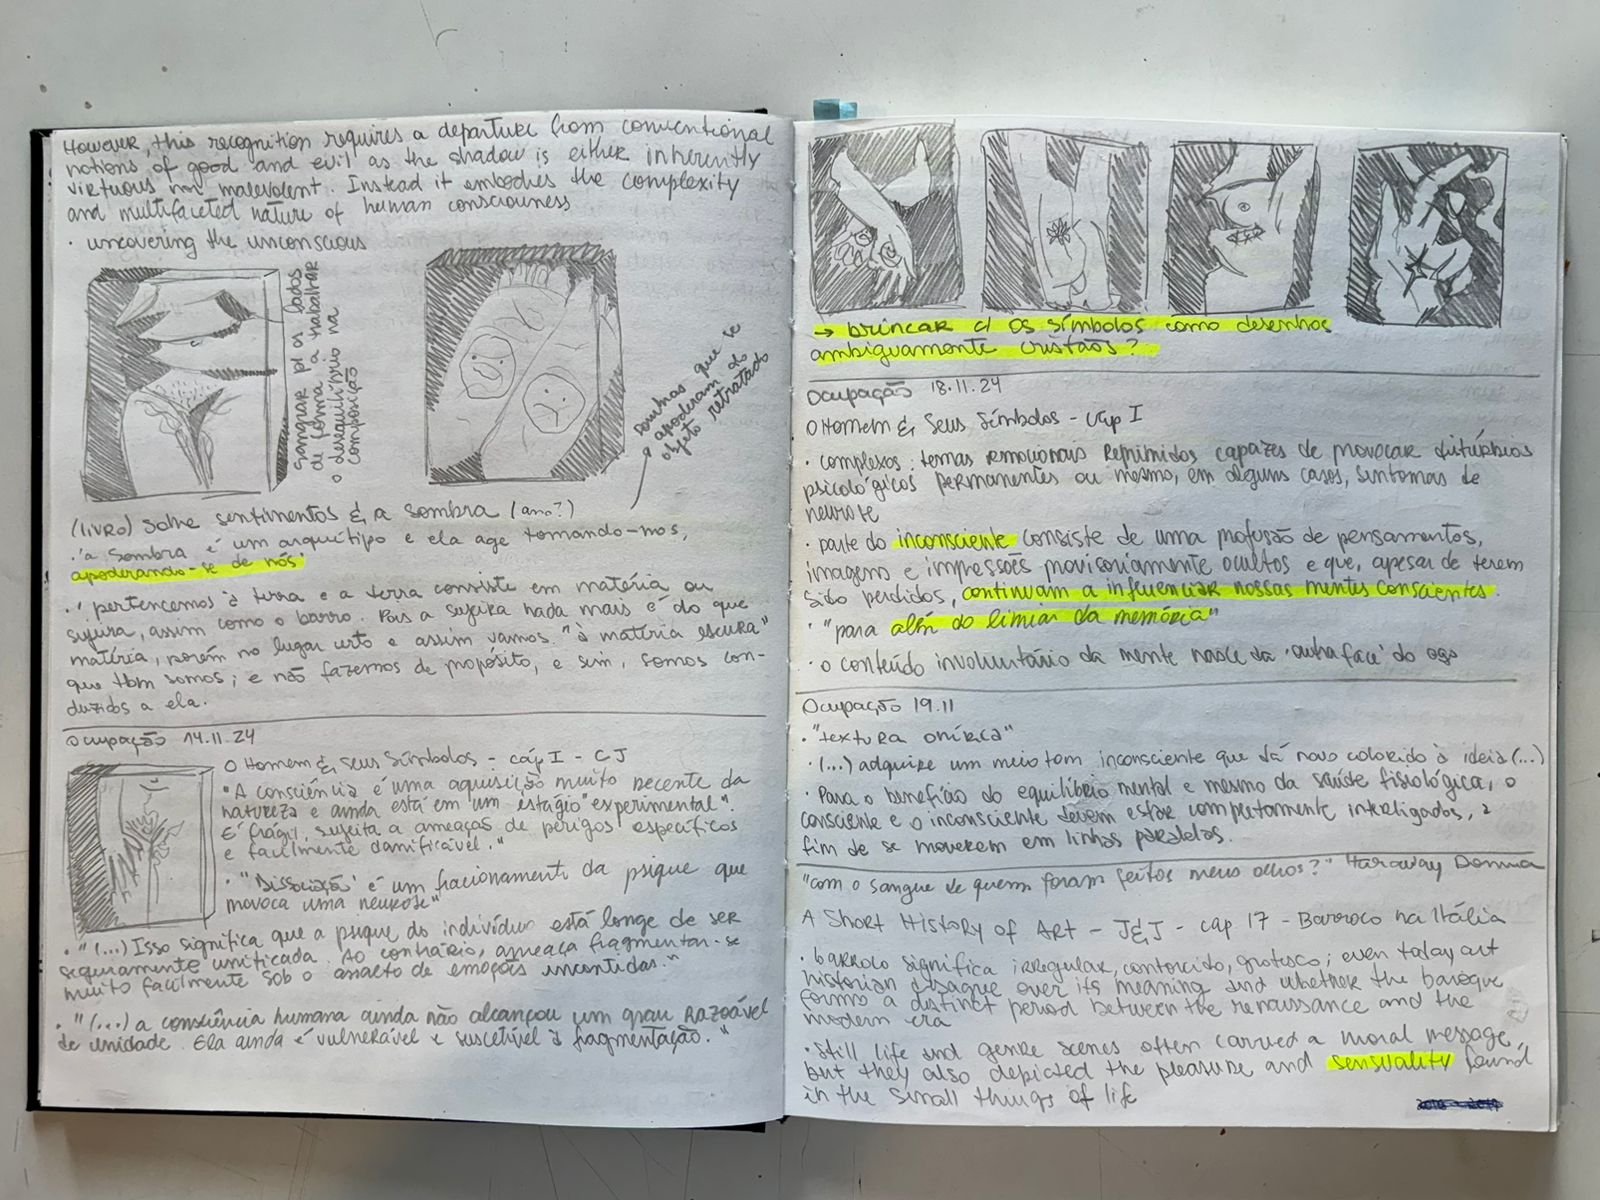 However, this recognition requires a departure from conventional
notions of good and evil as the shadow is either inherently
virtuous nor malevolent. Instead it embodies the complexity
and multifaceted nature of human consciousness
• uncovering the unconscious
sangrar p/ os lados
de forma a trabalhar
o desequilíbrio na
composição
sombras que se
apoderam do
objeto retratado
(livro) Sobre sentimentos & a sombra (ano?)
• 'a sombra é um arquétipo e ela age tomando-nos,
apoderando-se de nós'
• ' pertencemos à terra e a terra consiste em matéria ou
sujura, assim como o barro. Pois a sujeira nada mais é do que
matéria, porém no lugar certo e assim vamos. "à matéria escura"
que tbm somos; e não fazemos de propósito, e sim, somos con-
duzidos a ela.
Ocupação 14.11.24
O Homem & seus Símbolos - cáp I - CJ
• "A consciência é uma aquisição muito recente da
natureza e ainda está em um estágio "experimental".
É frágil, sujeita a ameaças de perigos específicos
e facilmente danificável."
• "'Dissociação' é um fracionamento da psique que
provoca uma neurose"
• "(...) Isso significa que a psique do indivíduo está longe de ser
seguramente unificada. Ao contrário, ameaça fragmentar-se
muito facilmente sob o assalto de emoções incontidas."
• "(...) a consciência humana ainda não alcançou um grau razoável
de unidade. Ela ainda é vulnerável e suscetível à fragmentação."
→ brincar c/ os símbolos como desenhos
ambiguamente cristãos?
Ocupação 18.11.24
O Homem & Seus Símbolos - Cáp I
• complexos: temas emocionais reprimidos capazes de provocar distúrbios
psicológicos permanentes ou mesmo, em alguns casos, sintomas de
neurose
• parte do inconsciente consiste de uma profusão de pensamentos,
imagens e impressões provisoriamente ocultos e que, apesar de terem
sido perdidos, continuam a influenciar nossas mentes conscientes.
• "para além do limiar da memória"
• o conteúdo involuntário da mente nasce da 'outra face' do ego
Ocupação 19.11
• "textura onírica"
• (...) adquire um meio tom inconsciente que dá novo colorido à ideia (...)
• Para o benefício do equilíbrio mental e mesmo da saúde fisiológica, o
consciente e o inconsciente devem estar completamente interligados, a
fim de se moverem em linhas paralelas.
"com o sangue de quem foram feitos meus olhos?" Haraway Donna
A Short History of Art - J&J - cap 17 - Barroco na Itália
• barroco significa irregular, contorcido, grotesco; even today art
historian disagree over its meaning and whether the baroque
forms a distinct period between the renaissance and the
modern era
• Still life and genre scenes often carried a moral message,
but they also depicted the pleasure and sensuality found
in the small things of life